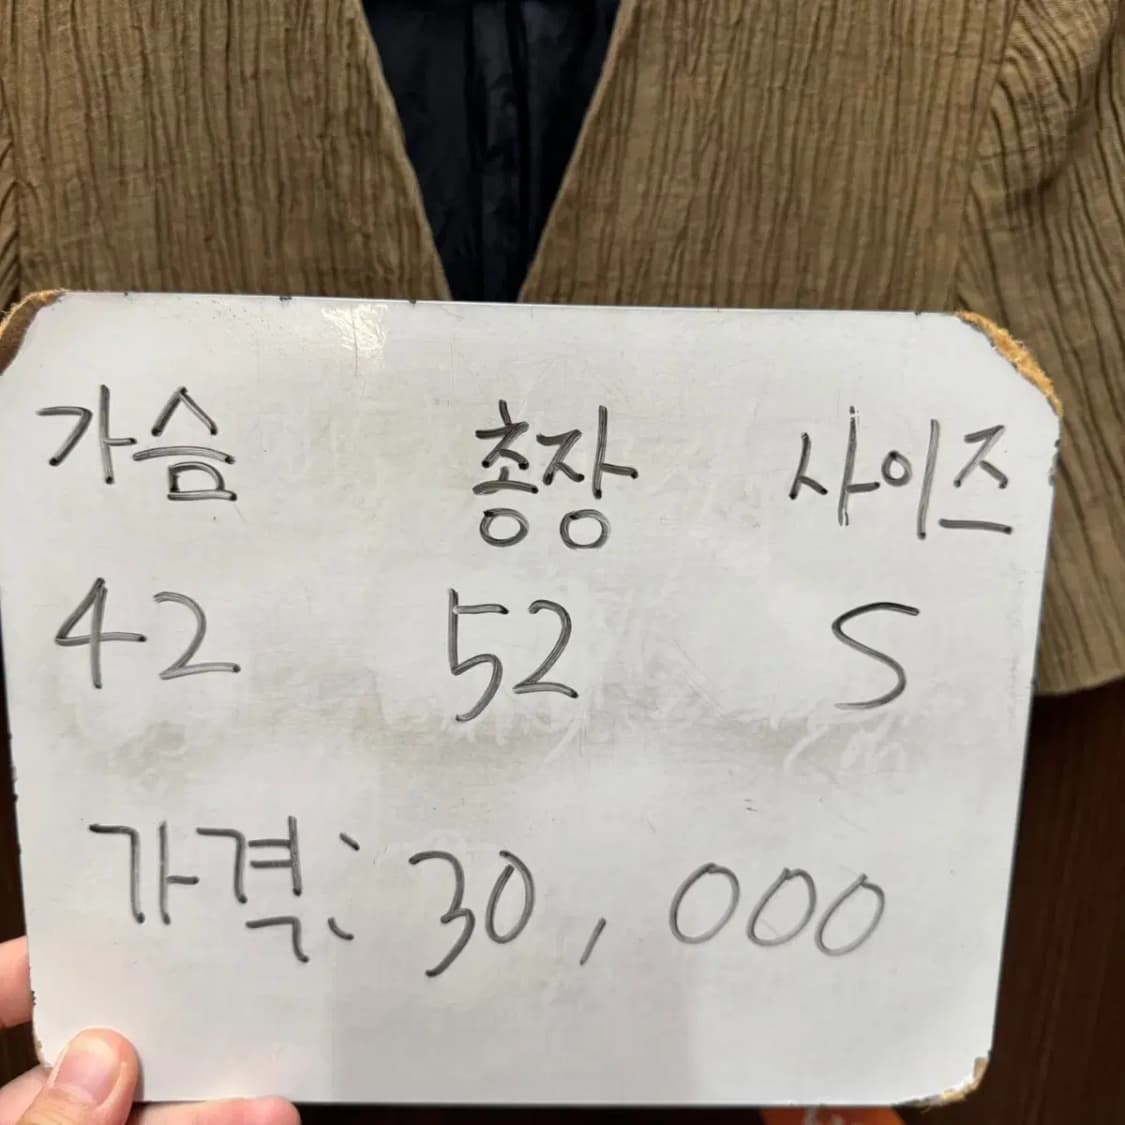 가슴 총장 사이즈
42 52 S
가격: 30,000